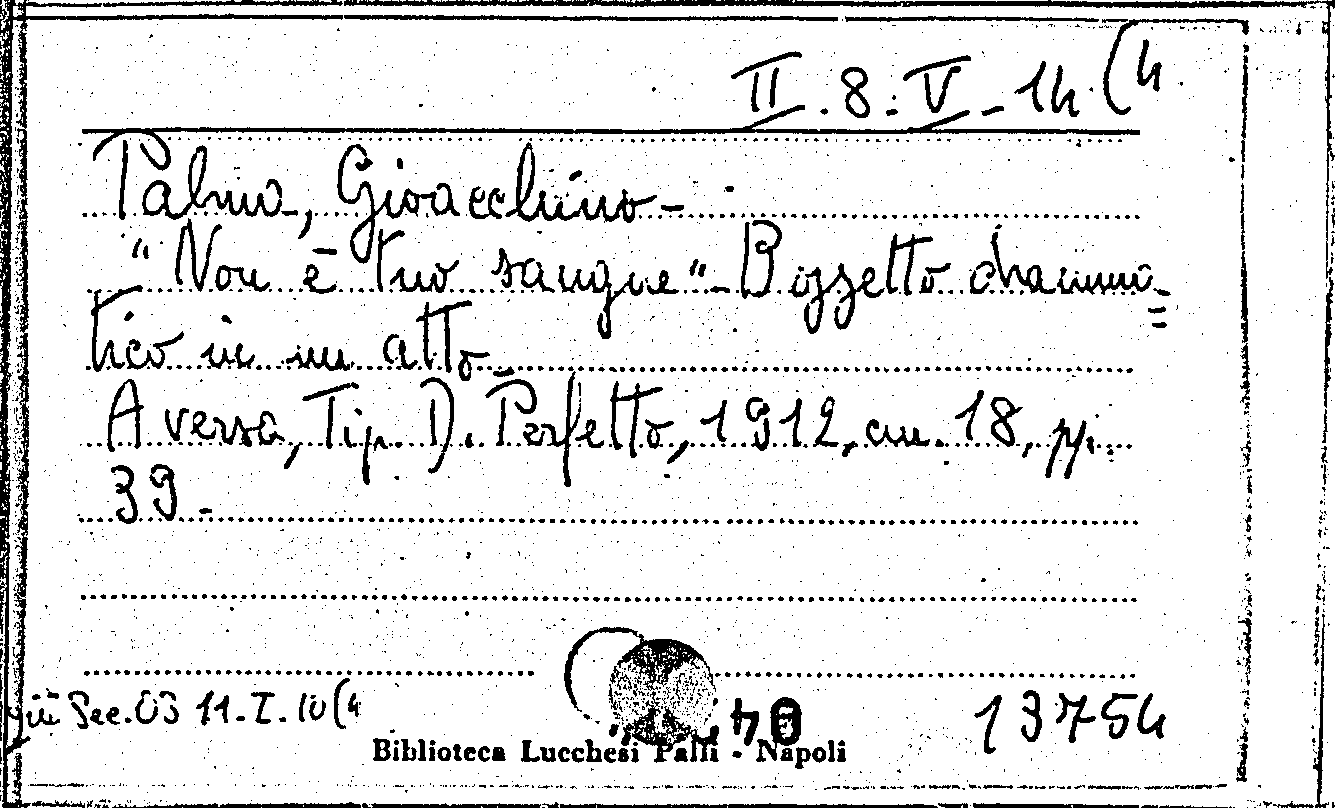 II.8.V-14(4
Palma, Gioacchino-
"Non è tuo sangue"- Bozzetto dramma=
tico in un atto-
Aversa, Tip. D. Perfetto, 1912, cm. 18, pp.
39.
Sec. 03 11-I.10(4
13754
Biblioteca Lucchesi Palli - Napoli